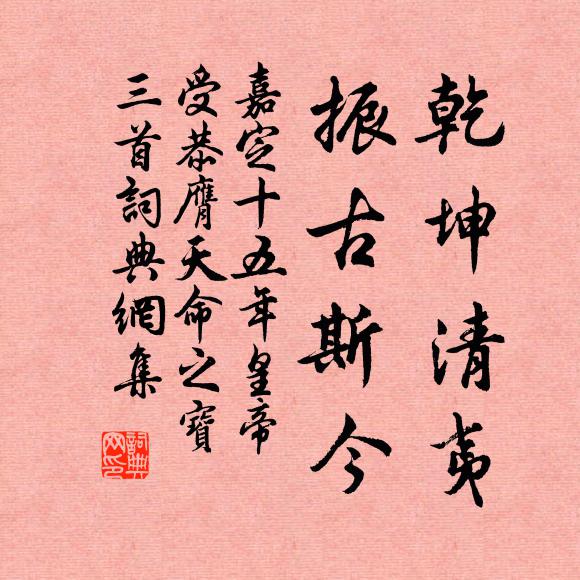 乾坤清夷
振古斯今
嘉定十五年皇帝
受恭膺天命之寶
三首詞典網集
詞典
网印